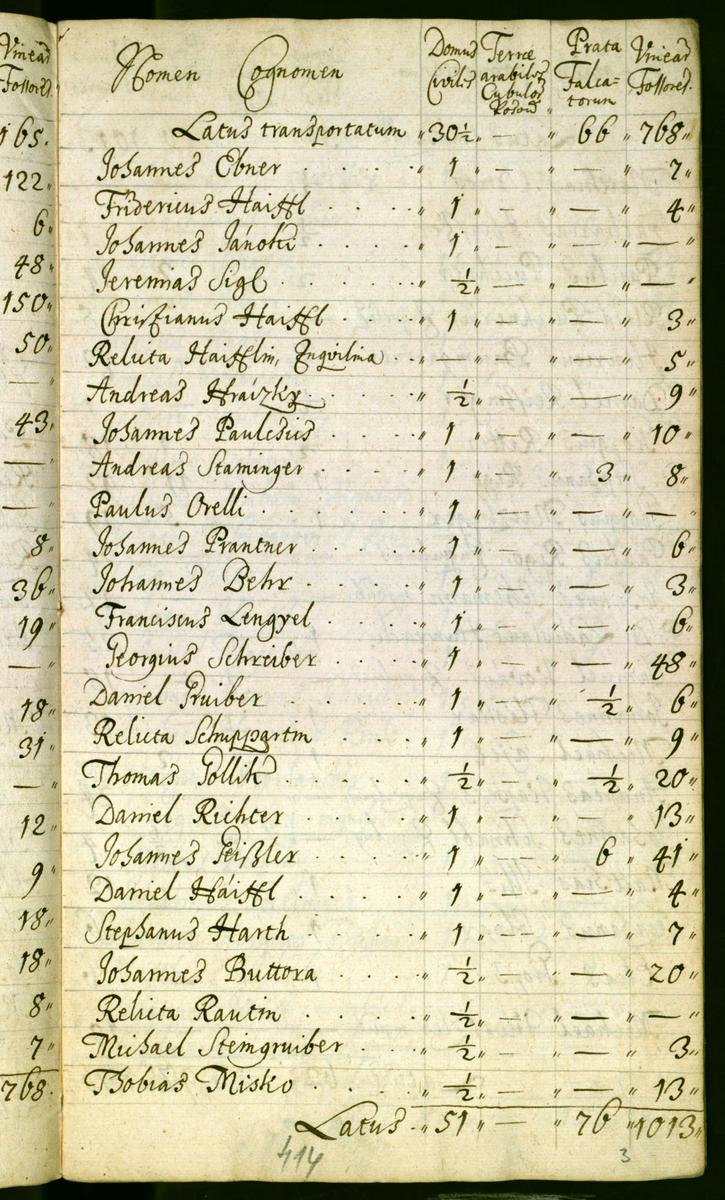 Vinear
Fossores
165
122
6
48
150
50
—
43
—
—
8
36
19
—
18
31
—
12
9
18
18
8
7
768
Nomen Cognomen Domus Civilis Terræ arabiles Cubulos Prata Falca=torum Vinear Fossores
Latus transportatum „ 30½ „ — „ 66 „ 768„
Johannes Ebner . . . . „ 1 „ — „ — „ 7„
Fridericus Haiffl . . . . „ 1 „ — „ — „ 4„
Johannes Jánoki . . . . „ 1 „ — „ — „ — „
Jeremias Sigl . . . . „ ½ „ — „ — „ — „
Christianus Haiffl . . . „ 1 „ — „ — „ 3„
Relicta Haifflin, Inqvilina . . „ — „ — „ — „ 5„
Andreas Hraizky . . . „ ½ „ — „ — „ 9„
Johannes Paulesius . . . „ 1 „ — „ — „ 10„
Andreas Staminger . . . . „ 1 „ — „ 3 „ 8„
Paulus Orelli . . . . . „ 1 „ — „ — „ — „
Johannes Prantner . . . . „ 1 „ — „ — „ 6„
Johannes Behr . . . . „ 1 „ — „ — „ 3„
Franciscus Lengyel . . . . „ 1 „ — „ — „ 6„
Georgius Schreiber . . . . „ 1 „ — „ — „ 48„
Daniel Gruiber . . . . . „ 1 „ — „ ½ „ 6„
Relicta Schuppartin . . . . „ 1 „ — „ — „ 9„
Thomas Gollik . . . . . „ ½ „ — „ ½ „ 20„
Daniel Richter . . . . . „ 1 „ — „ — „ 13„
Johannes Geißler . . . . „ 1 „ — „ 6 „ 41„
Daniel Háiffl . . . . . „ 1 „ — „ — „ 4„
Stephanus Harth . . . . „ 1 „ — „ — „ 7„
Johannes Buttora . . . . „ ½ „ — „ — „ 20„
Relicta Rautin . . . . „ ½ „ — „ — „ — „
Michael Steingruiber . . . „ ½ „ — „ — „ 3„
Thobias Misko . . . . „ ½ „ — „ — „ 13„
Latus . „ 51 „ — „ 76 „ 1013„
414 3